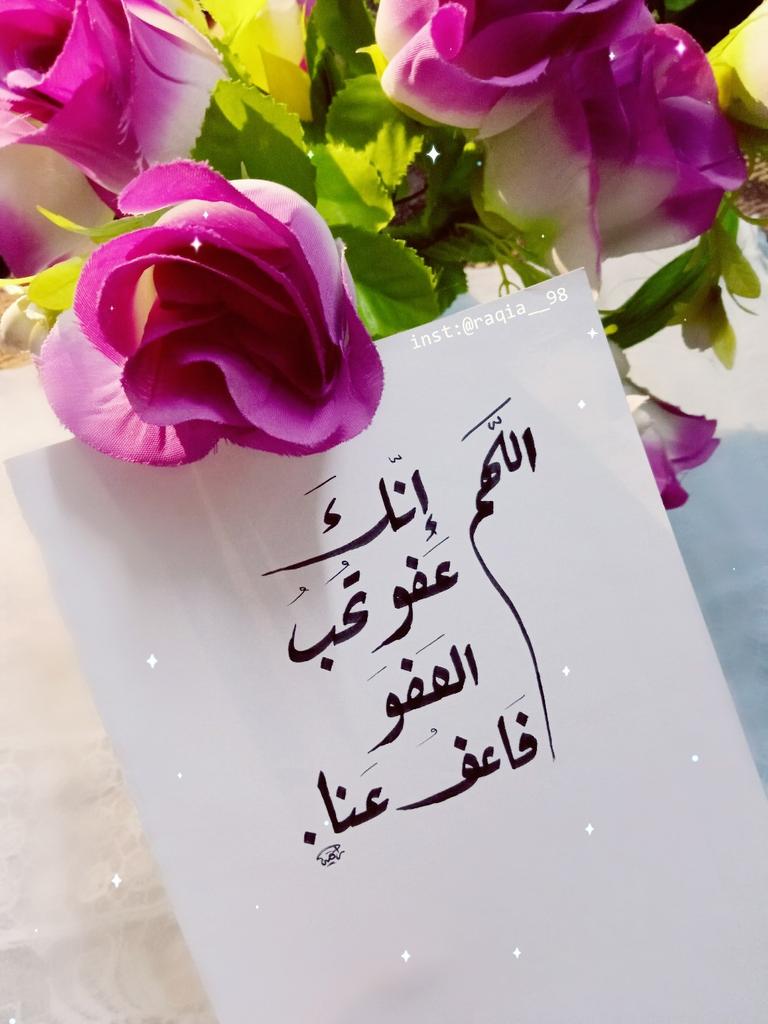 inst:@raqia__98
اللَّهم
إنَّكَ
عَفو تُحبُ
العَفوَ
فَاعفُ عَنا.